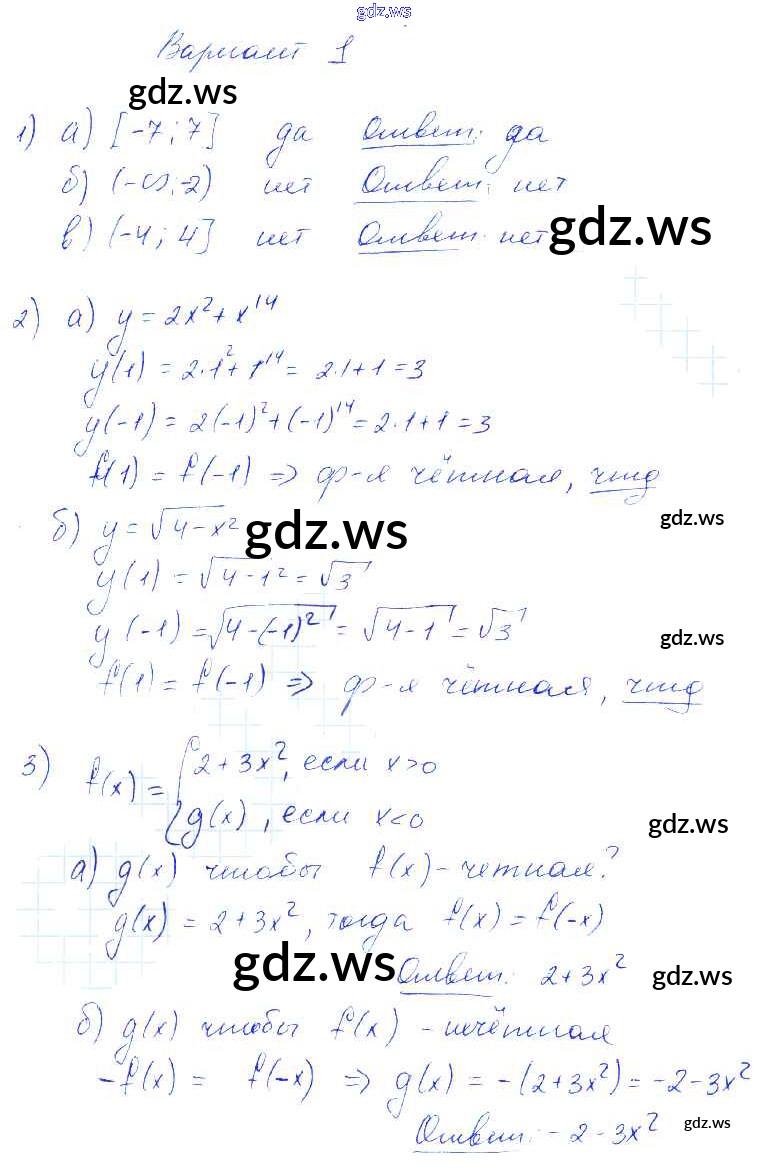 gdz.ws
Вариант 1
gdz.ws
1) а) [-7; 7] да Ответ: да
б) (-∞; -2) нет Ответ: нет
в) (-4; 4] нет Ответ: нет
gdz.ws
2) а) y = 2x² + x¹⁴
y(1) = 2·1² + 1¹⁴ = 2·1+1 = 3
y(-1) = 2(-1)² + (-1)¹⁴ = 2·1+1 = 3
f(1) = f(-1) => ф-я чётная, чтд
б) y = √(4-x²)
gdz.ws
gdz.ws
y(1) = √(4-1²) = √3
y(-1) = √(4-(-1)²) = √(4-1) = √3
gdz.ws
f(1) = f(-1) => ф-я чётная, чтд
3) f(x) = { 2+3x², если x>0
g(x), если x<0
gdz.ws
а) g(x) чтобы f(x) - четная?
g(x) = 2+3x², тогда f(x) = f(-x)
gdz.ws
Ответ: 2+3x²
gdz.ws
б) g(x) чтобы f(x) - нечётная
-f(x) = f(-x) => g(x) = -(2+3x²) = -2-3x²
Ответ: -2-3x²
gdz.ws